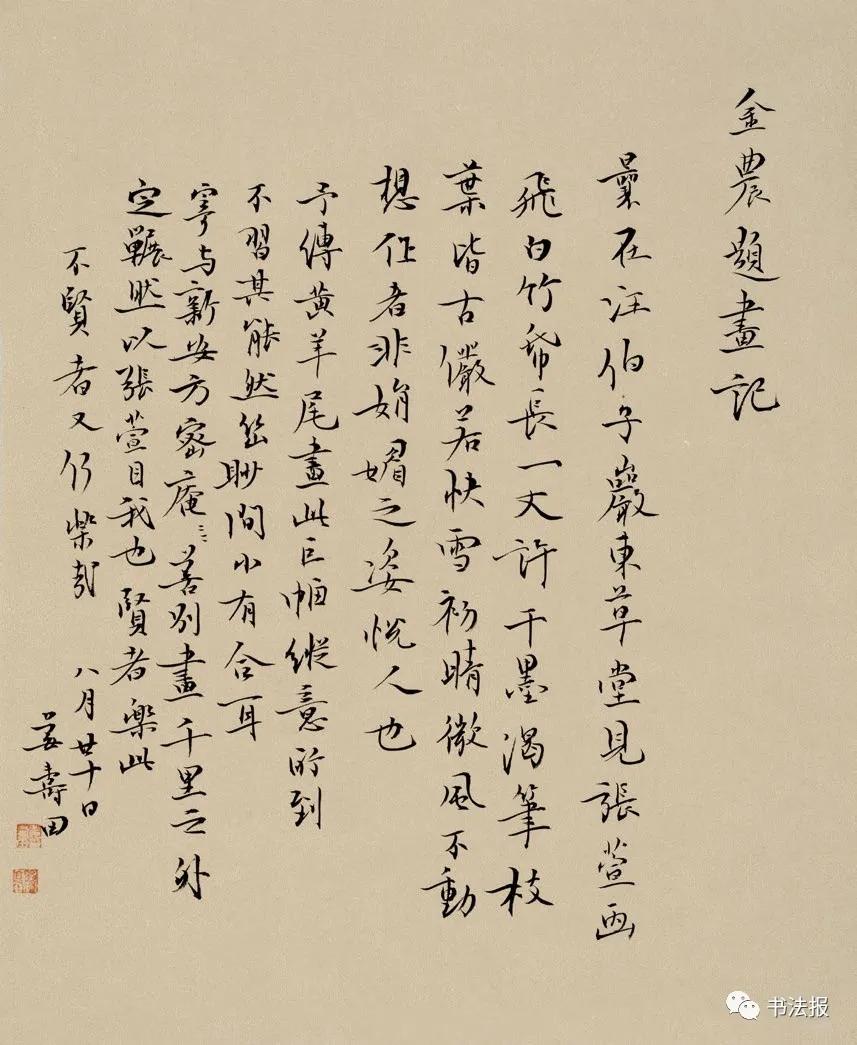 金農題畫記
曩在汪伯子巖東草堂見張萱画
飛白竹帋長一丈許干墨渴筆枝
葉皆古儼若快雪初晴微風不動
想作者非娟媚之姿悅人也
予縛黃羊尾畫此巨幅縱意所到
不習其能然眇間小有合耳
寄与新安方密庵〻善別畫千里之外
定囅然以張萱目我也賢者樂此
不賢者又何樂哉 八月廿十日
姜壽田
书法报